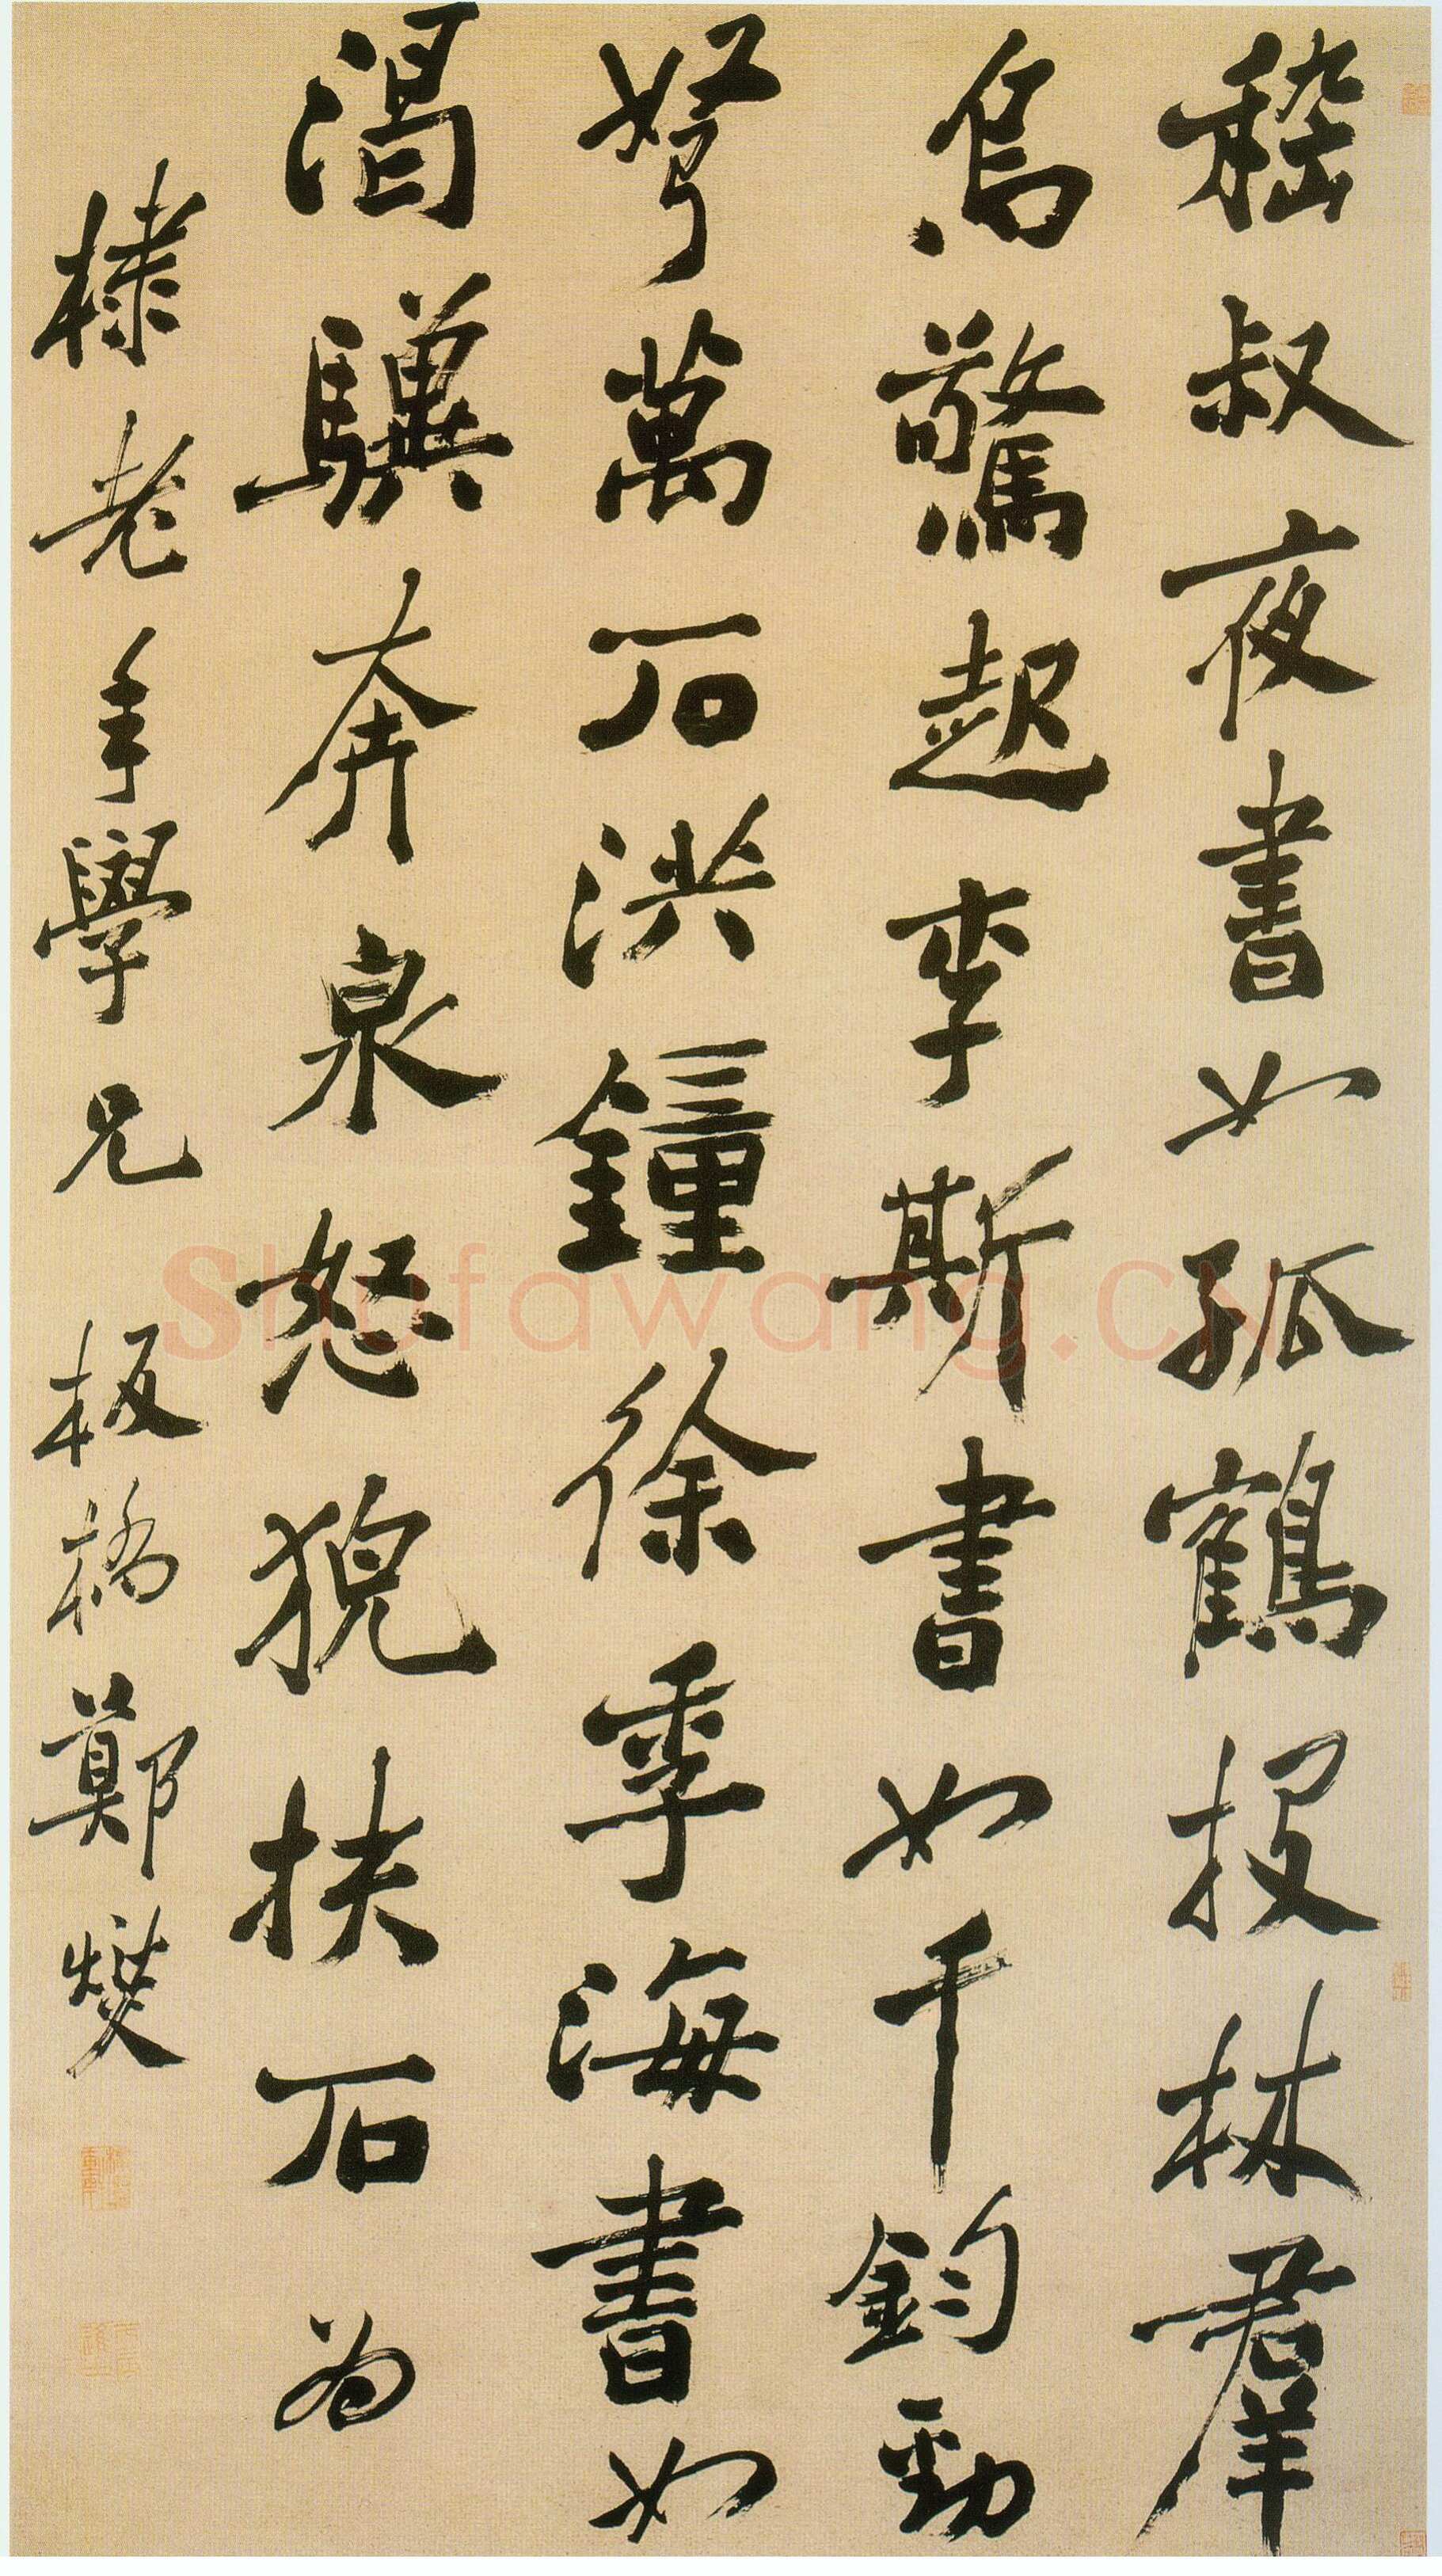 嵇叔夜書如孤鶴投林羣
烏驚起李斯書如千鈞勁
弩萬石洪鐘徐季海書如
渴驥奔泉怒猊抉石为
棣老年學兄 板橋鄭燮
Shufawang.CN